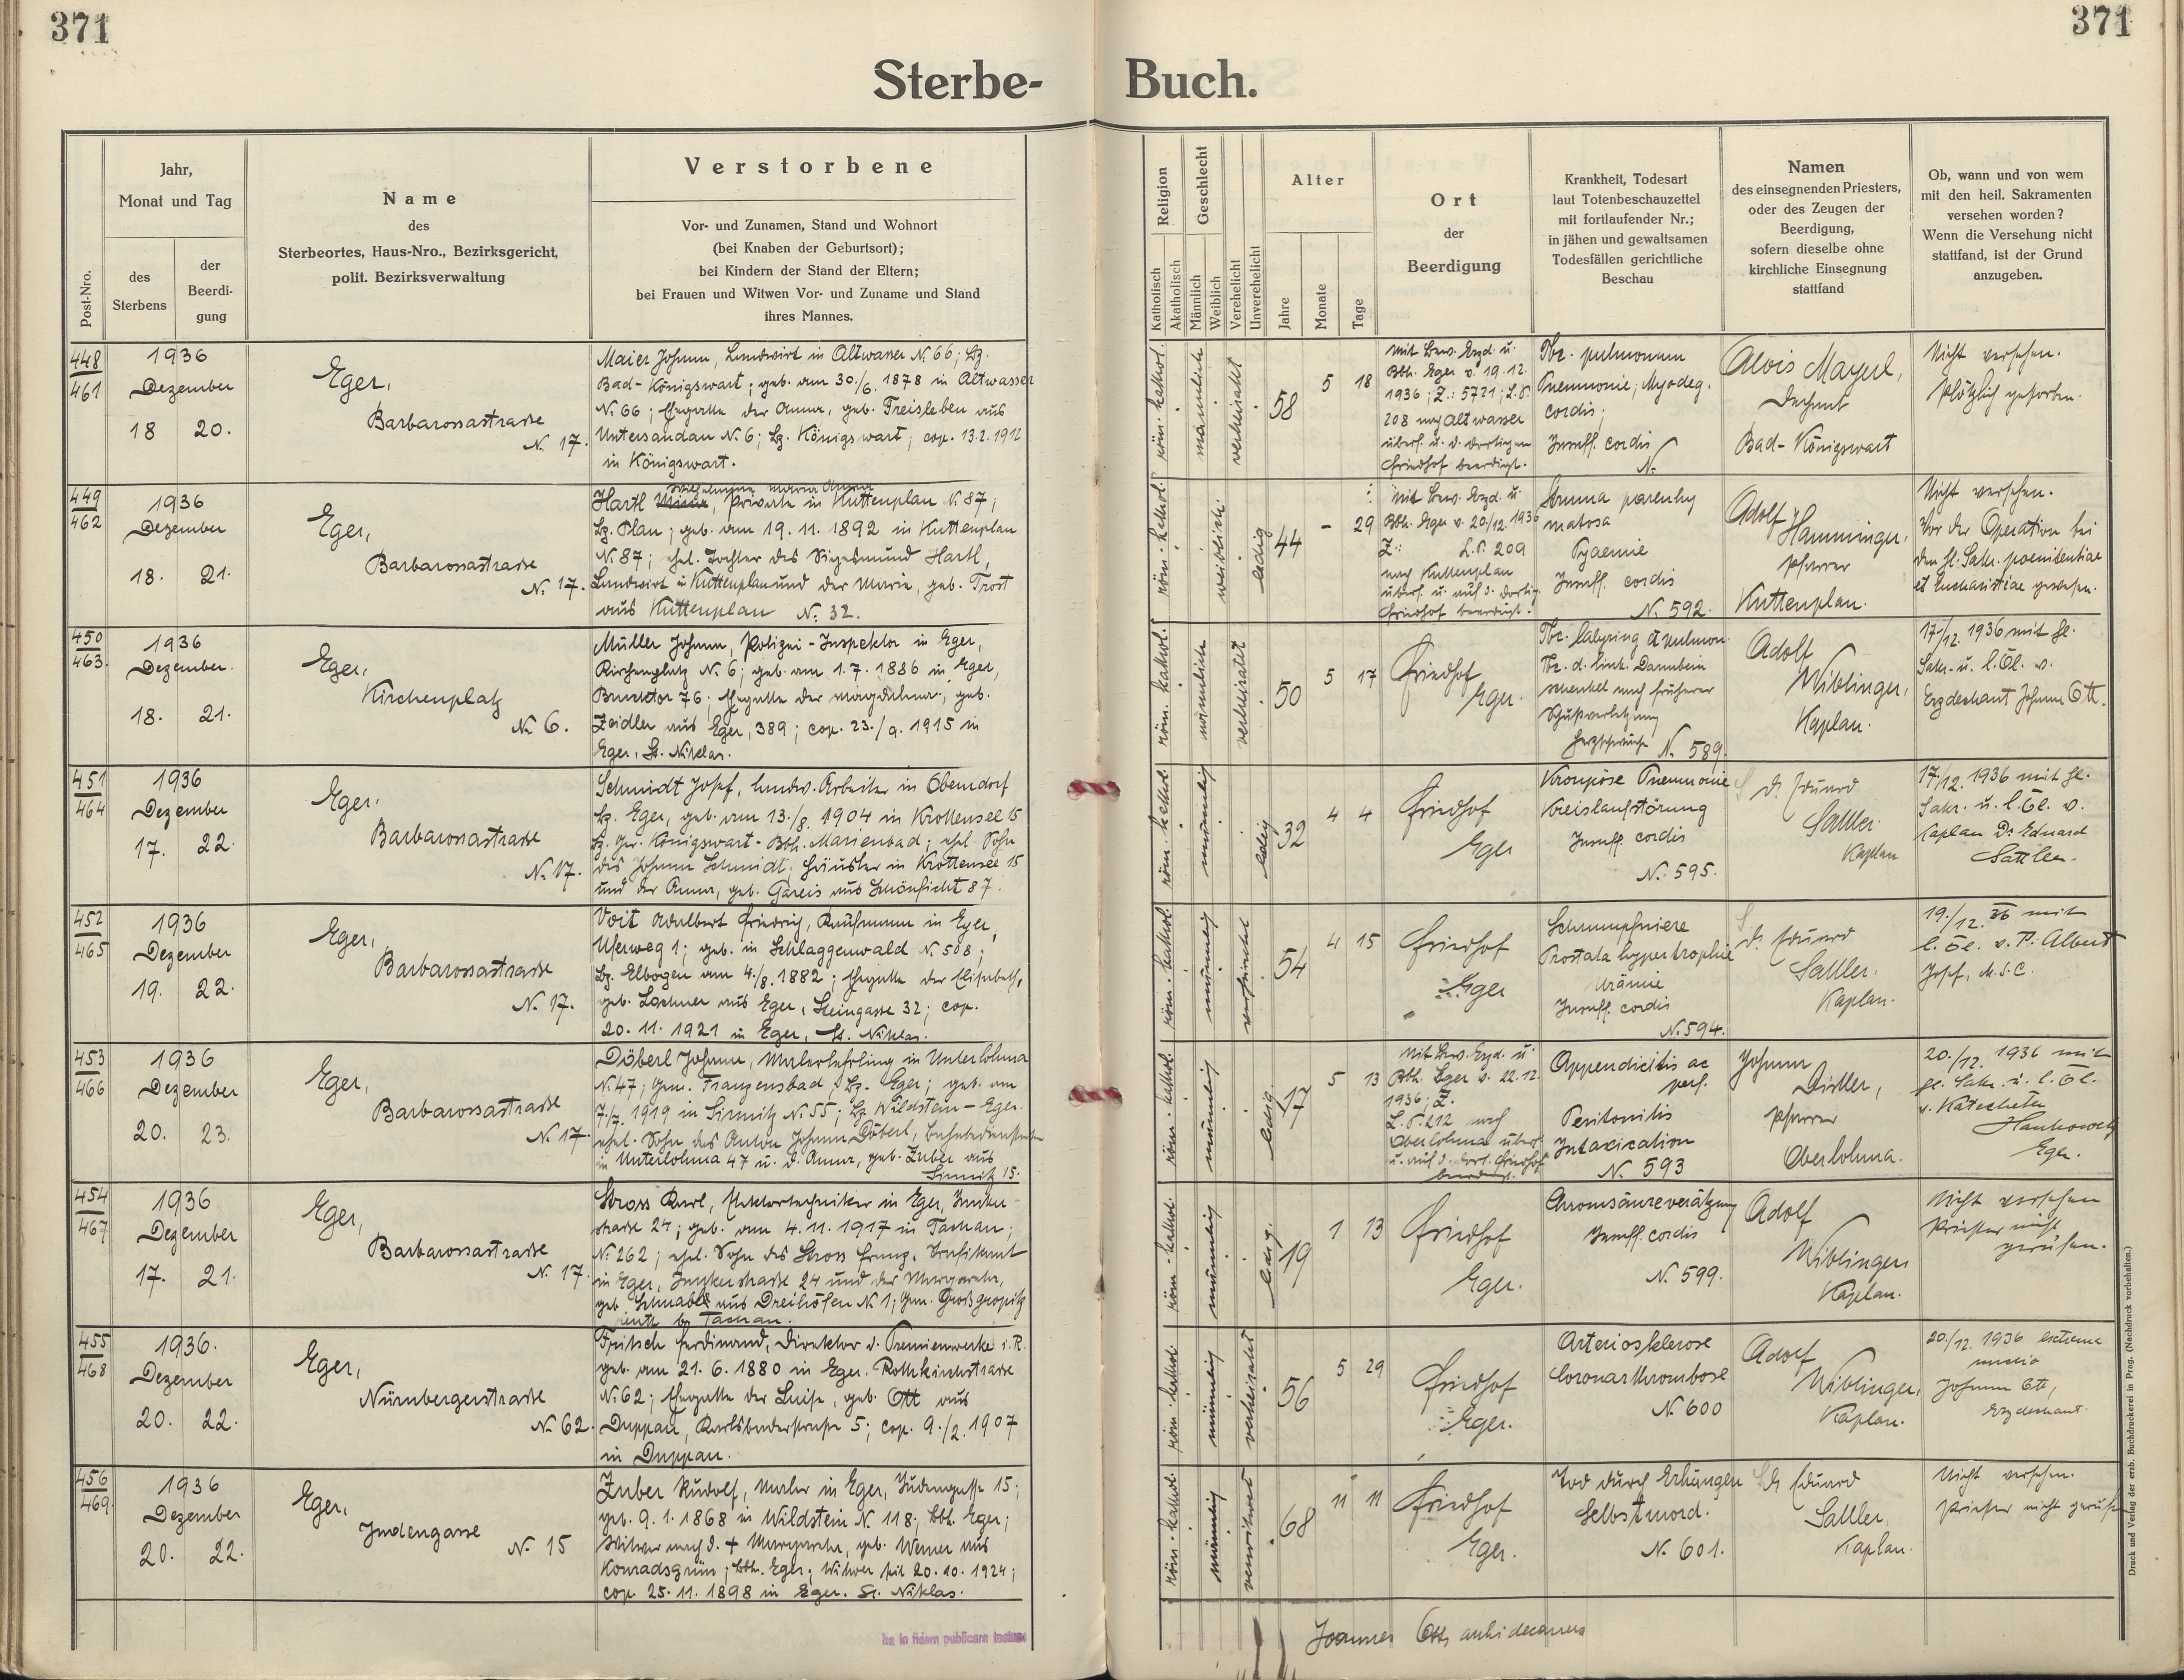 371
371
Sterbe- Buch.
Post-Nro.
Jahr,
Monat und Tag
des
Sterbens
der
Beerdi-
gung
Name
des
Sterbeortes, Haus-Nro., Bezirksgericht,
polit. Bezirksverwaltung
Verstorbene
Vor- und Zunamen, Stand und Wohnort
(bei Knaben der Geburtsort);
bei Kindern der Stand der Eltern;
bei Frauen und Witwen Vor- und Zuname und Stand
ihres Mannes.
Religion
Katholisch
Akatholisch
Geschlecht
Männlich
Weiblich
Verehelicht
Unverehelicht
Alter
Jahre
Monate
Tage
Ort
der
Beerdigung
Krankheit, Todesart
laut Totenbeschauzettel
mit fortlaufender Nr.;
in jähen und gewaltsamen
Todesfällen gerichtliche
Beschau
Namen
des einsegnenden Priesters,
oder des Zeugen der
Beerdigung,
sofern dieselbe ohne
kirchliche Einsegnung
stattfand
Ob, wann und von wem
mit den heil. Sakramenten
versehen worden?
Wenn die Versehung nicht
stattfand, ist der Grund
anzugeben.
448
461
1936
Dezember
18 20.
Eger,
Barbarossastrasse
N. 17.
Maier Johann, Landwirt in Altwasser N. 66; Bz.
Bad-Königswart; geb. am 30./6. 1878 in Altwasser
N. 66; Ehegatte der Anna, geb. Freisleben aus
Untersandau N. 6; Bz. Königswart; cop. 13.2.1912
in Königswart.
röm. kathol.
männlich
verheiratet
58
5
18
Mit Bew. Bzd. u.
Bbh. Eger v. 19.12.
1936; Z.: 5721; L.P.
208 nach Altwasser
überf. u. a. dortigen
Friedhof beerdigt.
Tbc. pulmonum
Pneumonie; Myodeg.
cordis;
Insuff. cordis
N.
Alois Mayerl,
Dechant
Bad-Königswart
Nicht versehen.
Plötzlich gestorben.
449
462
1936
Dezember
18. 21.
Eger,
Barbarossastrasse
N. 17.
Wilhelmine Maria Anna
Hartl, Private in Kuttenplan N. 87;
Bz. Plan; geb. am 19.11.1892 in Kuttenplan
N. 87; ehel. Tochter des Siegesmund Hartl,
Landwirt in Kuttenplan und der Maria, geb. Trost
aus Kuttenplan N. 32.
röm. kathol.
weiblich
ledig
44
-
29
Mit Bew. Bzd. u
Bbh. Eger v. 20./12. 1936
Z.: L.P. 209
nach Kuttenplan
überf. u. auf d. dortig.
Friedhof beerdigt.
Struma parenchy
matosa
Pyaemie
Insuff. cordis
N. 592.
Adolf Hamminger,
Pfarrer
Kuttenplan.
Nicht versehen.
Vor der Operation bei
den hl. Sakr. poenitentiae
et Eucharistiae gewesen.
450
463
1936
Dezember.
18. 21.
Eger,
Kirchenplatz
N. 6.
Müller Johann, Polizei-Inspektor in Eger,
Kirchenplatz N. 6; geb. am 1.7.1886 in Eger,
Brucktor 76; Ehegatte der Magdalena, geb.
Zeidler aus Eger, 389; cop. 23./9. 1915 in
Eger, St. Niklas.
röm. kathol.
männlich
verheiratet
50
5
17
Friedhof
Eger.
Tbc. laryng. et pulmon.
Tbc. d. link. Darmbein
nach früherer
Schußverletzung
Herzschwäche N. 589.
Adolf
Wiblinger,
Kaplan.
17./12. 1936 mit hl.
Sakr. u. l. Öl. v.
Erzdechant Johann Ott.
451
464
1936
Dezember
17. 22.
Eger,
Barbarossastrasse
N. 17.
Schmidt Josef, landw. Arbeiter in Oberndorf
Bz. Eger, geb. am 13./8. 1904 in Krottensee 15
Bz. Ger. Königswart-Bbh. Marienbad; ehel. Sohn
des Johann Schmidt, Häusler in Krottensee 15
und der Anna, geb. Gareis aus Schönficht 87.
röm. kathol.
männlich
ledig
32
4
4
Friedhof
Eger
Kroupöse Pneumonie
Kreislaufstörung
Insuff. cordis
N. 595.
Dr. Eduard
Sattler.
Kaplan
17./12. 1936 mit hl.
Sakr. u. l. Öl. v.
Kaplan Dr. Eduard
Sattler.
452
465
1936
Dezember
19. 22.
Eger,
Barbarossastrasse
N. 17.
Voit Adalbert Friedrich, Kaufmann in Eger,
Uferweg 1; geb. in Schlaggenwald N. 508;
Bz. Elbogen am 4./8. 1882; Ehegatte der Elisabeth,
geb. Lochner aus Eger, Steingasse 32; cop.
20.11.1921 in Eger, St. Niklas.
röm. kathol.
männlich
verheiratet
54
4
15
Friedhof
Eger
Schrumpfniere
Prostata hypertrophie
Urämie
Insuff. cordis
N. 594.
Dr. Eduard
Sattler.
Kaplan.
19./12. 36 mit
l. Öl. v. P. Albert
Josef, M.S.C.
453
466
1936
Dezember
20. 23.
Eger,
Barbarossastrasse
N. 17.
Döberl Johann, Malerlehrling in Unterlohma
N. 47; Gem. Franzensbad, Bz. Eger; geb. am
7./7. 1919 in Sirmitz N. 55; Bz Wildstein-Eger.
ehel. Sohn des Anton Johann Döberl,
in Unterlohma 47 u. d. Anna, geb. Zuber aus
Sirmitz 15.
röm. kathol.
männlich
ledig
17
5
13
Mit Bew. Bzd. u
Bbh. Eger v. 22.12.
1936; Z.
L.P. 212 nach
Oberlohma überf.
u. auf d. dort. Friedhof
beerdigt.
Appendicitis ac
perf.
Peritonitis
Intoxication
N. 593
Johann
Distler,
Pfarrer
Oberlohma.
20./12. 1936 mit
hl. Sakr. u. l. Öl.
v. Katecheten
Hankowetz
Eger.
454
467
1936
Dezember
17. 21.
Eger,
Barbarossastrasse
N. 17.
Stross Karl, Elektortechniker in Eger, Imker-
strasse 24; geb. am 4.11.1917 in Tachau;
N. 262; ehel. Sohn des Stross Franz, Trafikant
in Eger, Imkerstrasse 24 und der Margarete,
geb. Schnabl aus Dreihöfen N. 1; Gem. Großgropitz
reuth bei Tachau.
röm. kathol.
männlich
ledig.
19
1
13
Friedhof
Eger.
Chromsäureverätzung
Insuff. cordis
N. 599.
Adolf
Wiblinger
Kaplan.
Nicht versehen
Priester nicht
gerufen.
455
468
1936.
Dezember
20. 22.
Eger,
Nürnbergerstrasse
N. 62.
Fritsch Ferdinand, Direktor d. Premierwerke i. R.
geb. am 21.6.1880 in Eger. Rothkirchstrasse
N. 62; Ehegatte der Luise, geb. Ott aus
Duppau, Karlsbaderstraße 5; cop. 9./2. 1907
in Duppau.
röm. kathol.
männlich
verheiratet
56
5
29
Friedhof
Eger.
Arteriosklerose
Coronarthrombose
N. 600
Adolf
Wiblinger,
Kaplan.
20./12. 1936 extrema
unctio
Johann Ott,
Erzdechant.
456
469
1936
Dezember
20. 22.
Eger,
Judengasse
N. 15
Zuber Rudolf, Maler in Eger, Judengasse 15;
geb. 9.1.1868 in Wildstein N. 118; Bbh. Eger;
Witwer nach d. + Margarethe, geb. Werner aus
Konradsgrün; Bbh. Eger; Witwer seit 20.10.1924;
cop. 25.11.1898 in Eger. St. Niklas.
röm. kathol.
männlich
verwitwet
68
11
11
Friedhof
Eger.
Tod durch Erhängen
Selbstmord.
N. 601.
Dr. Eduard
Sattler,
Kaplan.
Nicht versehen.
Priester nicht gerufen
Ita in fidem publicam testamur
Joannes Ott, archidecanus
Druck und Verlag der erzb. Buchdruckerei in Prag. (Nachdruck vorbehalten.)